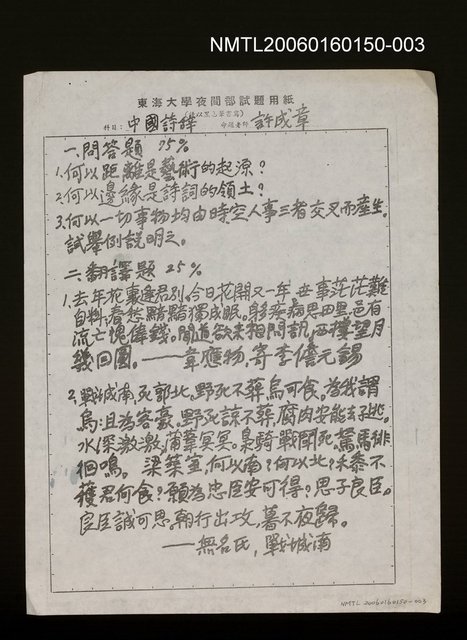 NMTL20060160150-003
東海大學夜間部試題用紙
(以黑色筆書寫)
科目：中國詩律 命題老師：許成章
一、問答題 75%
1.何以距離是藝術的起源？
2.何以邊緣是詩詞的領土？
3.何以一切事物均由時空人事三者交叉而產生。
試舉例說明之。
二、翻譯題 25%
1.去年花裏逢君別，今日花開又一年，世事茫茫難
自料，春愁黯黯獨成眠。身多疾病思田里，邑有
流亡愧俸錢。聞道欲來相問訊，西樓望月
幾回圓。——韋應物，寄李儋元錫
2.戰城南，死郭北，野死不葬烏可食。為我謂
烏：且為客豪。野死諒不葬，腐肉安能去子逃。
水深激激，蒲葦冥冥。梟騎戰鬥死，駑馬徘
徊鳴。 梁築室，何以南？何以北？禾黍不
獲君何食？願為忠臣安可得？思子良臣。
良臣誠可思。朝行出攻，暮不夜歸。
——無名氏，戰城南
NMTL 20060160150-003